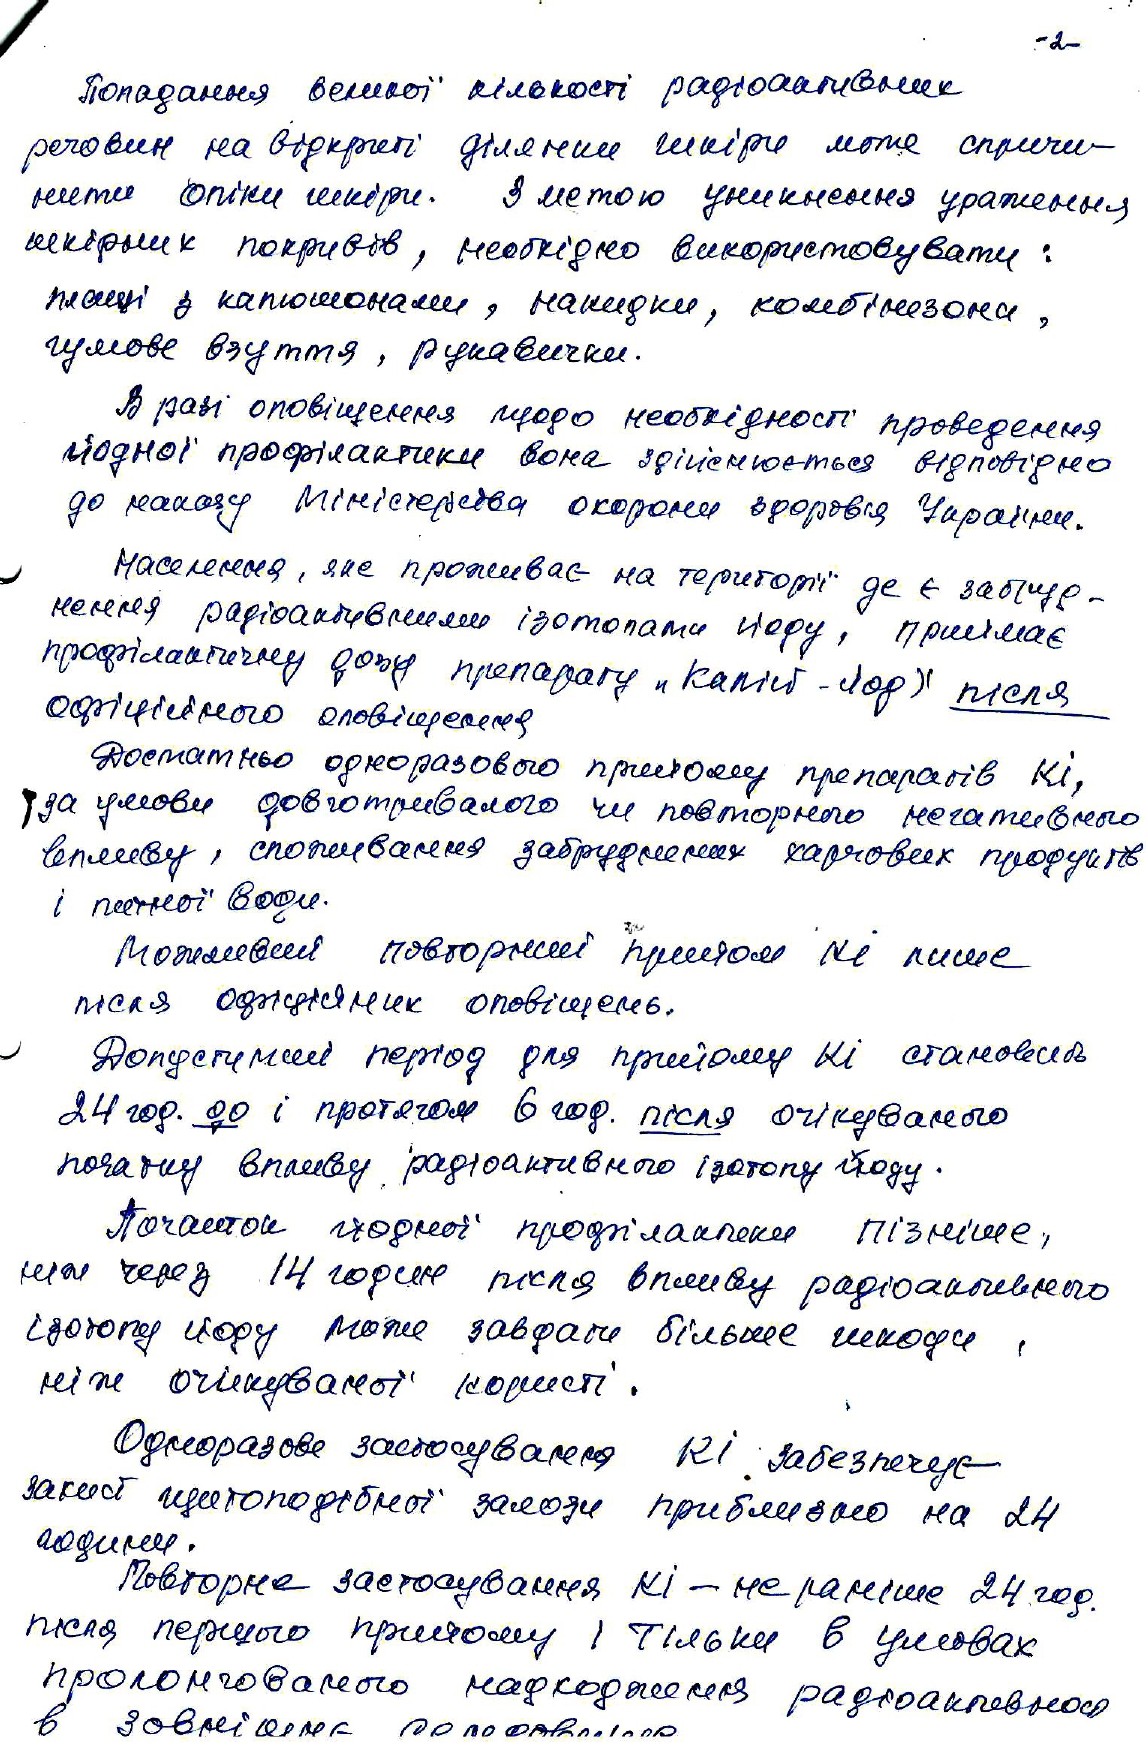 -2-
Попадання великої кількості радіоактивних
речовин на відкриті ділянки шкіри може спричи-
нити опіки шкіри. З метою уникнення ураження
шкірних покривів, необхідно використовувати:
плащі з капюшонами, накидки, комбінезони,
гумове взуття, рукавички.
В разі оповіщення щодо необхідності проведення
йодної профілактики вона здійснюється відповідно
до наказу Міністерства охорони здоров'я України.
Населення, яке проживає на території де є забруд-
нення радіоактивними ізотопами йоду, приймає
профілактичну дозу препарату „Калій-йод" після
офіційного оповіщення
Достатньо одноразового прийому препаратів КІ,
за умови довготривалого чи повторного негативного
впливу, споживання забруднених харчових продуктів
і питної води.
Можливий повторний прийом КІ лише
після офіційних оповіщень.
Допустимий період для прийому КІ становить
24 год. до і протягом 6 год. після очікуваного
початку впливу радіоактивного ізотопу йоду.
Початок йодної профілактики пізніше,
ніж через 14 годин після впливу радіоактивного
ізотопу йоду може завдати більше шкоди,
ніж очікуваної користі.
Одноразове застосування КІ забезпечує
захист щитоподібної залози приблизно на 24
години.
Повторне застосування КІ – не раніше 24 год.
після першого прийому і тільки в умовах
пролонгованого надходження
в зовнішнє